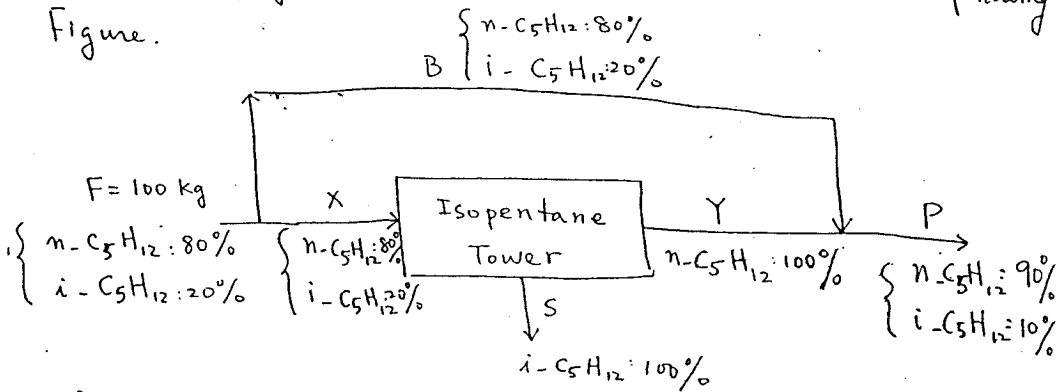 Figure.
B { n-C5H12:80%
i-C5H12:20%
F= 100 kg
{ n-C5H12:80%
i-C5H12:20%
X
{ n-C5H12:80%
i-C5H12:20%
Isopentane
Tower
Y
n-C5H12:100%
P
{ n-C5H12:90%
i-C5H12:10%
S
i-C5H12:100%